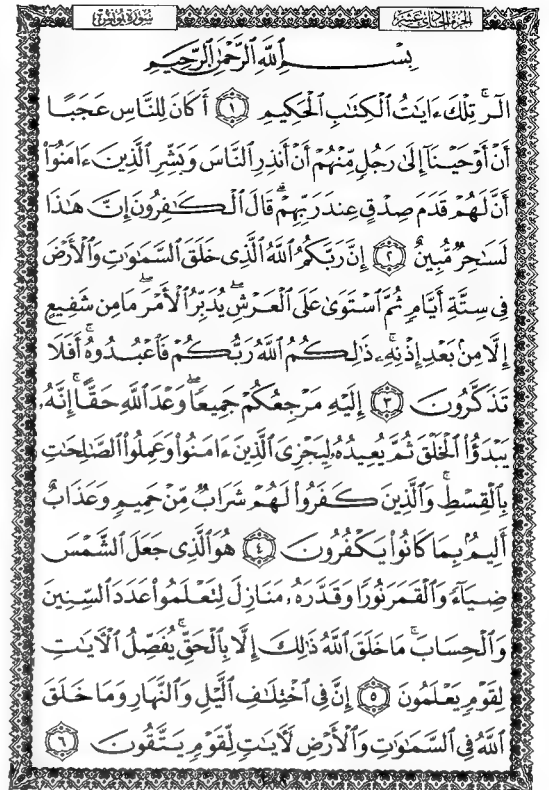 الجزء الحادي عشر
سورة يونس
بِسْمِ اللَّهِ الرَّحْمَٰنِ الرَّحِيمِ
الٓرۚ تِلْكَ ءَايَٰتُ ٱلْكِتَٰبِ ٱلْحَكِيمِ ١ أَكَانَ لِلنَّاسِ عَجَبًا
أَنْ أَوْحَيْنَآ إِلَىٰ رَجُلٍ مِّنْهُمْ أَنْ أَنذِرِ ٱلنَّاسَ وَبَشِّرِ ٱلَّذِينَ ءَامَنُوٓا۟
أَنَّ لَهُمْ قَدَمَ صِدْقٍ عِندَ رَبِّهِمْۗ قَالَ ٱلْكَٰفِرُونَ إِنَّ هَٰذَا
لَسَٰحِرٌ مُّبِينٌ ٢ إِنَّ رَبَّكُمُ ٱللَّهُ ٱلَّذِى خَلَقَ ٱلسَّمَٰوَٰتِ وَٱلْأَرْضَ
فِى سِتَّةِ أَيَّامٍ ثُمَّ ٱسْتَوَىٰ عَلَى ٱلْعَرْشِۖ يُدَبِّرُ ٱلْأَمْرَۖ مَا مِن شَفِيعٍ
إِلَّا مِنۢ بَعْدِ إِذْنِهِۦۚ ذَٰلِكُمُ ٱللَّهُ رَبُّكُمْ فَٱعْبُدُوهُۚ أَفَلَا
تَذَكَّرُونَ ٣ إِلَيْهِ مَرْجِعُكُمْ جَمِيعًاۖ وَعْدَ ٱللَّهِ حَقًّاۚ إِنَّهُۥ
يَبْدَؤُا۟ ٱلْخَلْقَ ثُمَّ يُعِيدُهُۥ لِيَجْزِىَ ٱلَّذِينَ ءَامَنُوا۟ وَعَمِلُوا۟ ٱلصَّٰلِحَٰتِ
بِٱلْقِسْطِۚ وَٱلَّذِينَ كَفَرُوا۟ لَهُمْ شَرَابٌ مِّنْ حَمِيمٍ وَعَذَابٌ
أَلِيمٌۢ بِمَا كَانُوا۟ يَكْفُرُونَ ٤ هُوَ ٱلَّذِى جَعَلَ ٱلشَّمْسَ
ضِيَآءً وَٱلْقَمَرَ نُورًا وَقَدَّرَهُۥ مَنَازِلَ لِتَعْلَمُوا۟ عَدَدَ ٱلسِّنِينَ
وَٱلْحِسَابَۚ مَا خَلَقَ ٱللَّهُ ذَٰلِكَ إِلَّا بِٱلْحَقِّۚ يُفَصِّلُ ٱلْءَايَٰتِ
لِقَوْمٍ يَعْلَمُونَ ٥ إِنَّ فِى ٱخْتِلَٰفِ ٱلَّيْلِ وَٱلنَّهَارِ وَمَا خَلَقَ
ٱللَّهُ فِى ٱلسَّمَٰوَٰتِ وَٱلْأَرْضِ لَءَايَٰتٍ لِّقَوْمٍ يَتَّقُونَ ٦